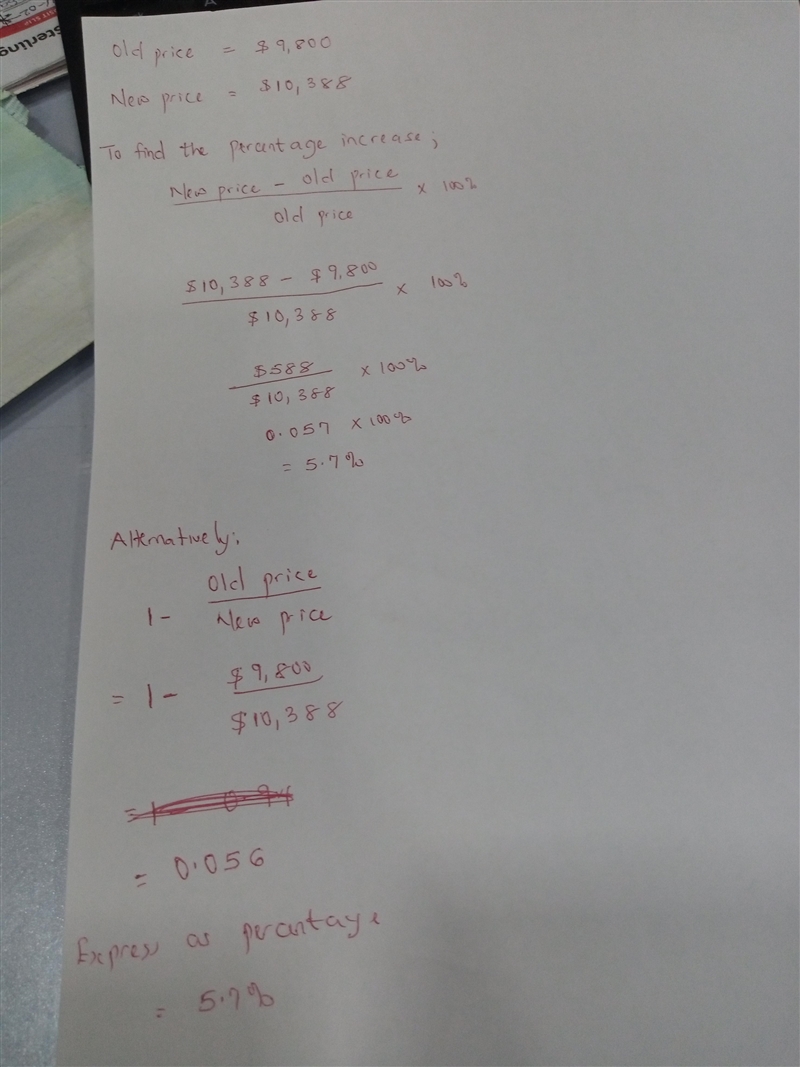 sterling
Old price = $9,800
New price = $10,388
To find the percentage increase;
New price - old price
old price
× 100%
$10,388 - $9,800
$10,388
× 100%
$588
$10,388
× 100%
0.057 × 100%
= 5.7%
Alternatively:
1 - Old price
New price
= 1 - $9,800
$10,388
= 0.056
Express as percentage
= 5.7%